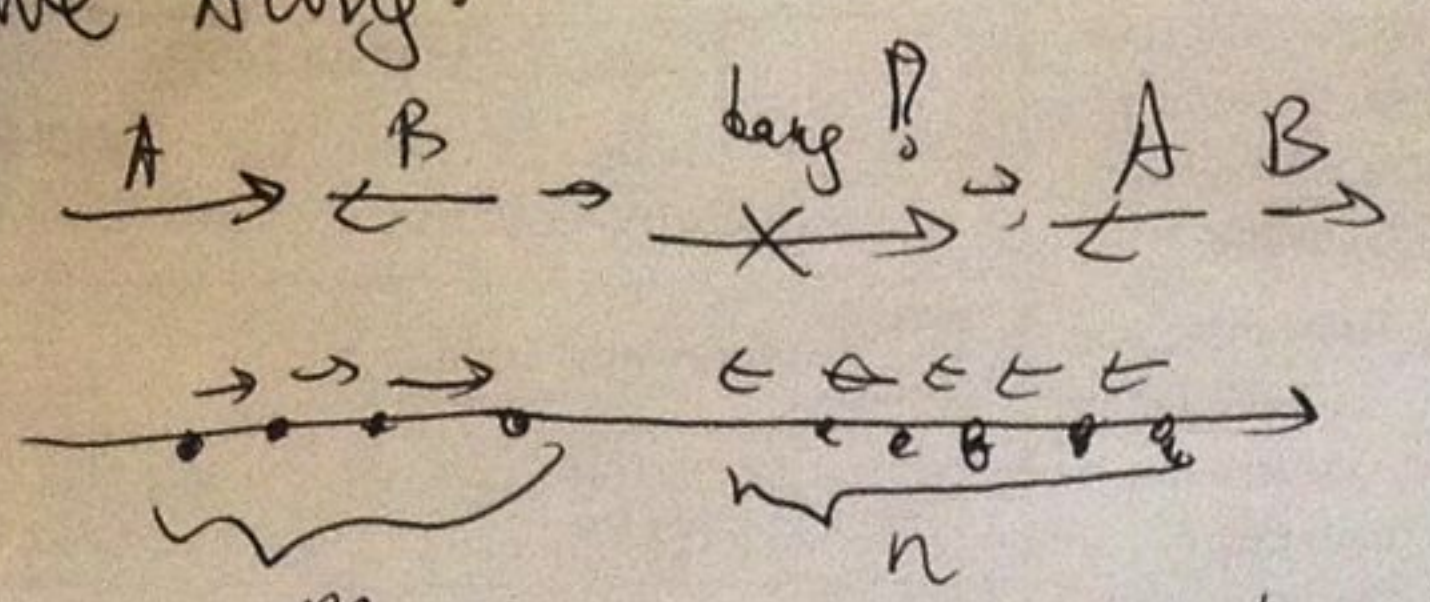 A B bang !? A B
n